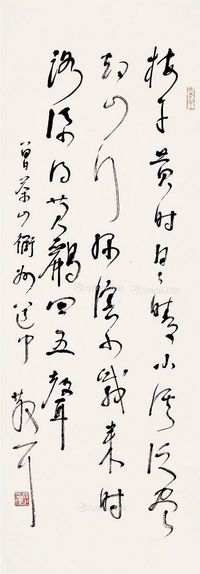 梅子黄时日日晴小溪泛尽
却山行绿阴不减来时
路添得黄鹂四五声
曾茶山衢州道中 散耳